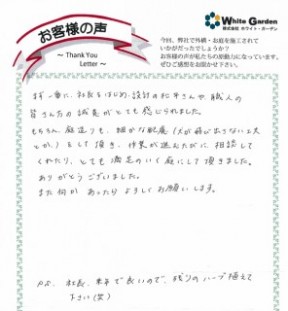 お客様の声
～ Thank You
Letter ～
White Garden
株式会社 ホワイト・ガーデン
今回、弊社で外構・お庭を施工されて
いかがだったでしょうか？
お客様の声が私たちの原動力になっています。
ぜひご感想をお聞かせ下さい。
まず一番に、社長をはじめ、設計の松平さんや、職人の
皆さん方の誠意がとても感じられました。
もちろん庭造りも、細かな配慮（犬が飛び出さない工夫
とか）をして頂き、作業が進むたびに相談して
くれたり、とても満足のいく庭にして頂きました。
ありがとうございました。
また何かあったらよろしくお願いします。
P.S. 社長、来年で良いので、残りのハーブ植えて
下さい(笑)